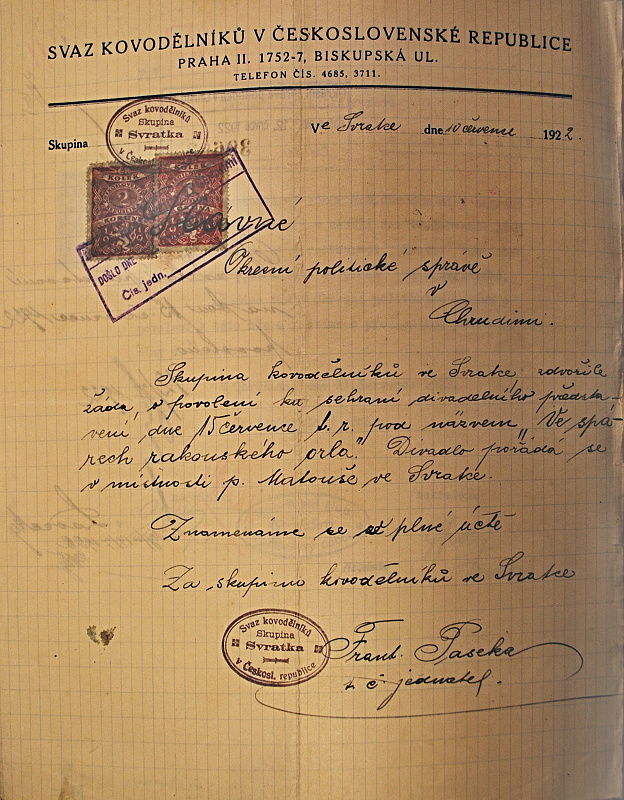 SVAZ KOVODĚLNÍKŮ V ČESKOSLOVENSKÉ REPUBLICE
PRAHA II. 1752-7, BISKUPSKÁ UL.
TELEFON ČÍS. 4685, 3711.
Svaz kovodělníků
Skupina
Svratka
v Českosl.
Skupina
Ve Svratce dne 10 července 1922.
KOLEK
2
KOLEK
DOŠLO DNE
Čís. jedn.
Slavné
Okresní politické správě
v
Chrudimi.
Skupina kovodělníků ve Svratce zdvořile
žádá, o povolení ku sehraní divadelního předsta-
vení dne 15 července t. r. pod názvem „Ve spá-
rech rakouského orla". Divadlo pořádá se
v místnosti p. Matouše ve Svratce.
Znamenáme se v plné úctě
Za skupinu kovodělníků ve Svratce
Svaz kovodělníků
Skupina
Svratka
v Českosl. republice
Frant. Paseka
t. č. jednatel.